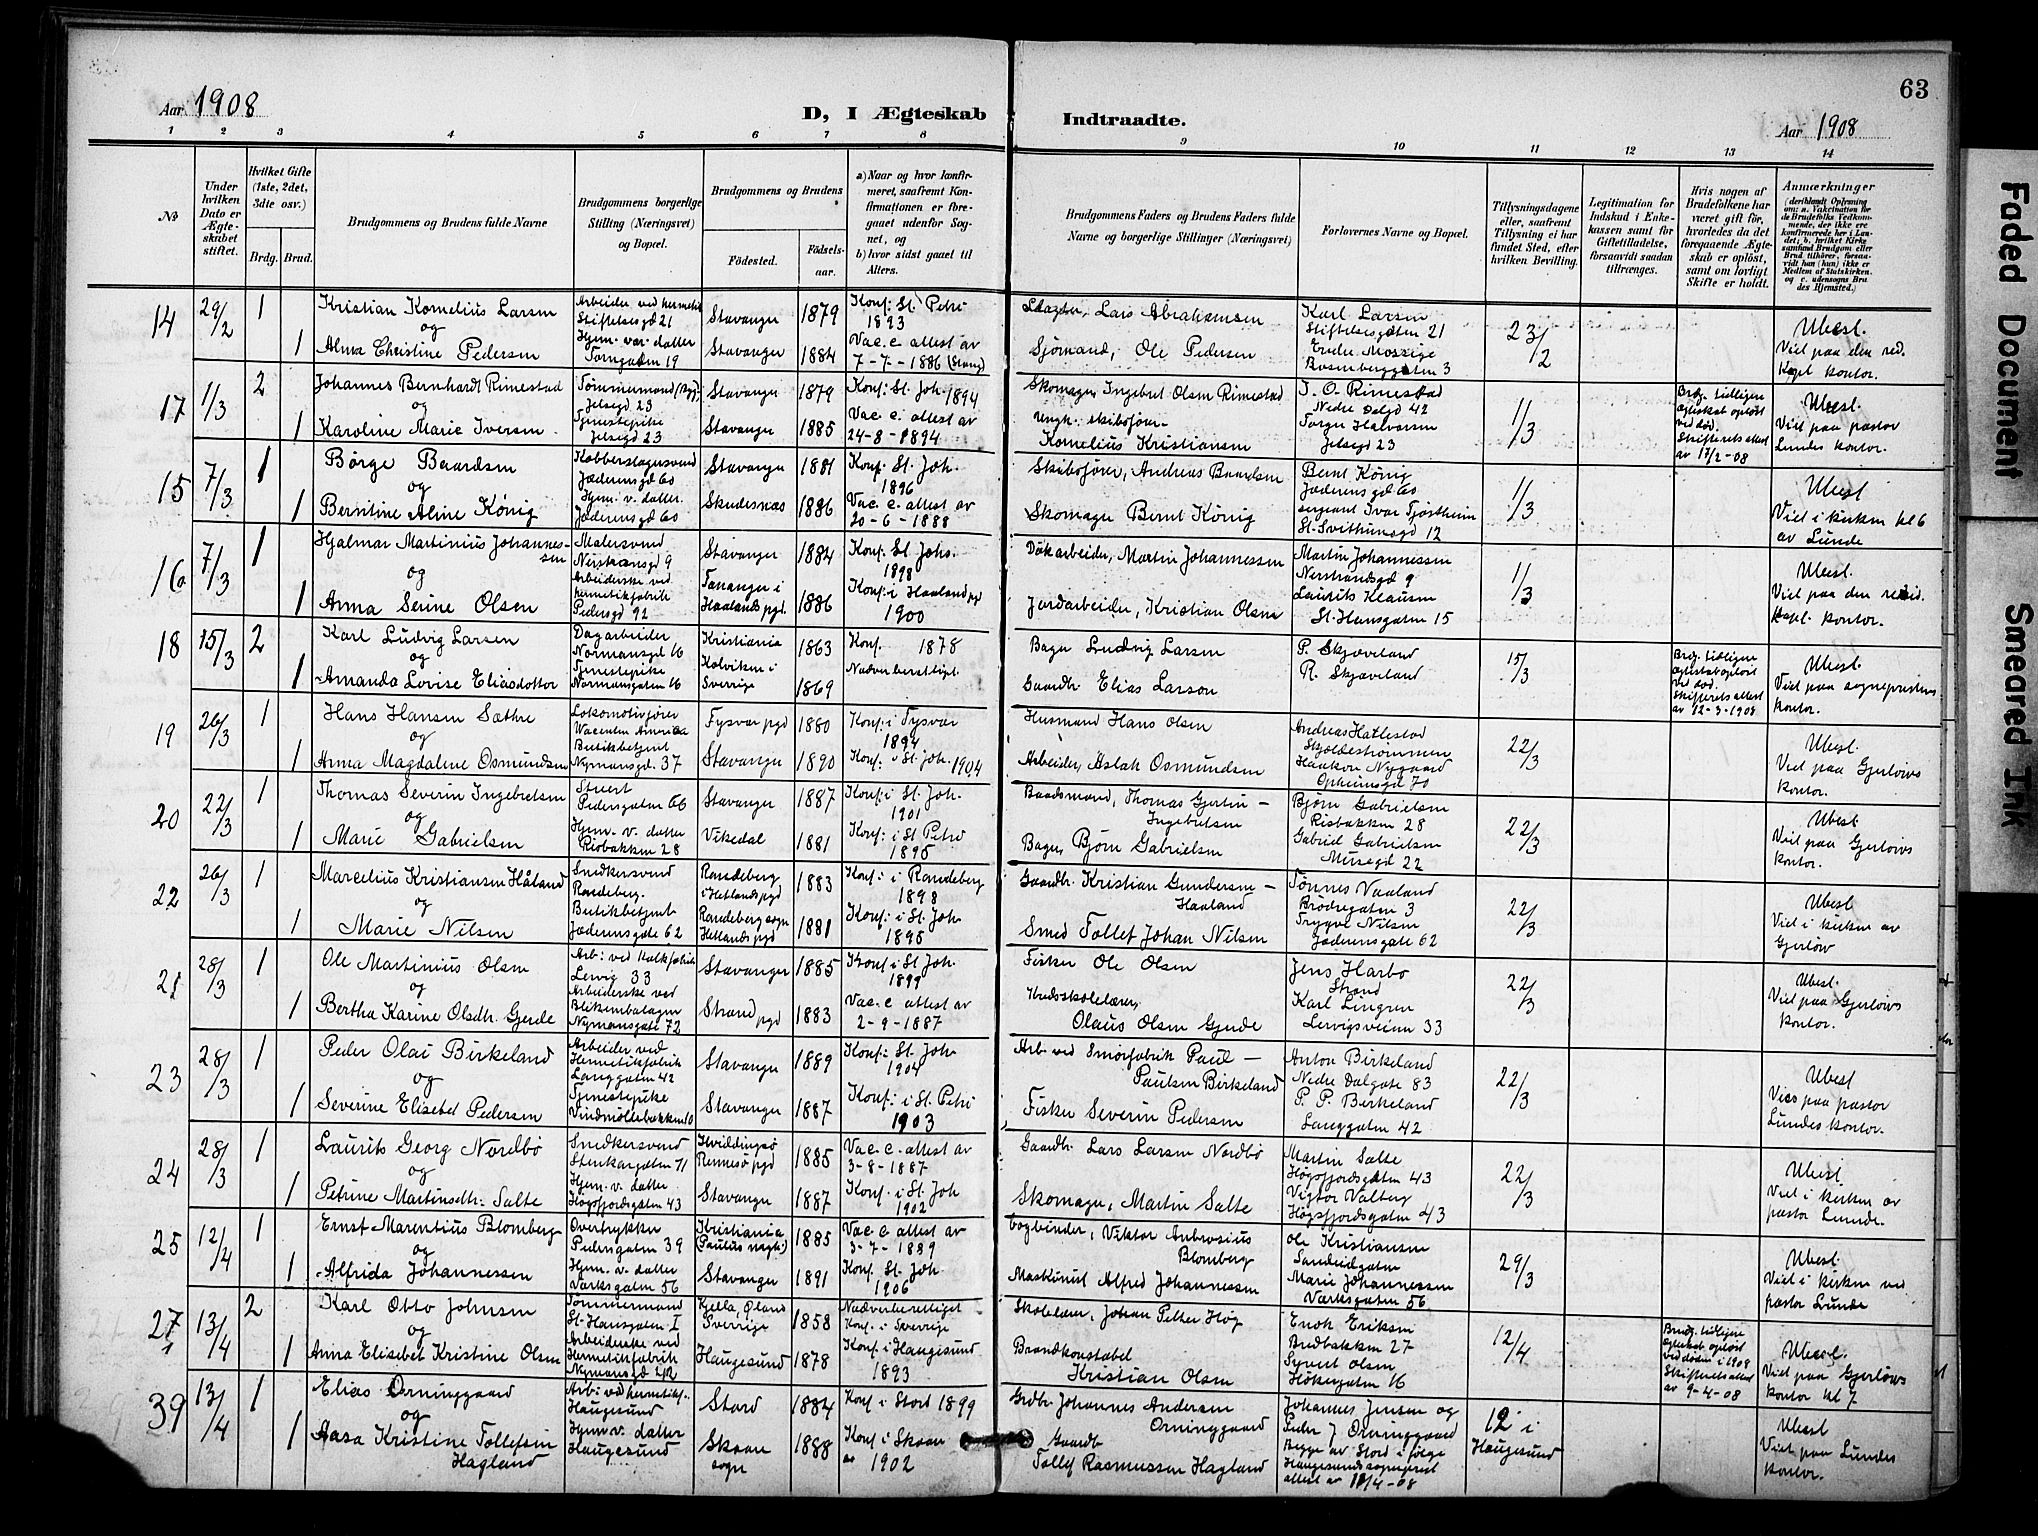 63
Aar 1908
D, I Ægteskab Indtraadte.
Aar 1908
1 2 3 4 5 6 7 8 9 10 11 12 13 14
No
Under hvilken Dato er Ægteskabet stiftet.
Hvilket Gifte (1ste, 2det, 3die osv.)
Brdg. Brud.
Brudgommens og Brudens fulde Navne
Brudgommens borgerlige Stilling (Næringsvei) og Bopæl.
Brudgommens og Brudens
Fødested. Fødselsaar.
a) Naar og hvor konfirmeret, saafremt Konfirmationen er foregaaet udenfor Sognet, og
b) hvor sidst gaaet til Alters.
Brudgommens Faders og Brudens Faders fulde Navne og borgerlige Stillinger (Næringsvei)
Forlovernes Navne og Bopæl.
Tillysningsdagene eller, saafremt Tillysning ei har fundet Sted, efter hvilken Bevilling.
Legitimation for Indskud i Enkekassen samt for Giftetilladelse, forsaavidt saadan tiltrænges.
Hvis nogen af Brudefolkene har været gift før, hvorledes da det foregaaende Ægteskab er opløst, samt om lovligt Skifte er holdt.
Anmærkninger
(deriblandt Oplysning om: a. Vakcination for de Brudefolks Vedkommende, der ikke ere konfirmerede her i Landet; b. hvilket Kirkesamfund Brudgom eller Brud tilhører, forsaavidt han (hun) ikke er Medlem af Statskirken, og c. udensogns Brudes Hjemsted.)
14 29/2 1 Kristian Kornelius Larsen Stiftelsesgd 21 Stavanger 1879 Konf: St. Petri 1893 Lars Abrahamsen Karl Larsen Stiftelsesgaten 21 23/2 Ubesl.
og
1 Alma Christine Pedersen Hjem. vær. datter Tarngaten 19 Stavanger 1884 Vac. c. attest av 7-7-1886 Sjømand, Ole Pedersen Viet paa den res. Kapl. kontor.
17 1/3 2 Johannes Bernhardt Rimestad Jelsegd 23 Stavanger 1879 Konf: St. Joh. 1894 Skomager Ingebret Olsen Rimestad T. O. Rimestad Nedre Dalgd 42 1/3 Brdg. tidligere egteskab opløst ved død. Skifterets attest av 17/2-08 Ubesl.
og
1 Karoline Marie Iversen Tjenestepike Jelsegd 23 Stavanger 1885 Vac. c. attest av 24-8-1894 Kornelius Kristiansen Torger Halvorsen Jelsegd 23 Viet paa pastor Lundes kontor.
15 7/3 1 Børge Baardsen Kobberslagersvend Jæderensgd 60 Stavanger 1881 Konf: St. Joh. 1896 Skibsfører, Andreas Baardsen Bernt König Jæderensgd 60 1/3 Ubesl
og
1 Berntine Aline König Hjem. v. datter. Jæderensgd 60 Skudesnes 1886 Vac. c. attest av 20-6-1888 Skomager Bernt König sergeant Ivar Tjøstheim St. Svithunsgd 12 Viet i kirken kl 6 av Lunde
16 7/3 1 Hjalmar Martinius Johannessen Malersvend Nerstrandsgd 9 Stavanger 1884 Konf: St. Johs. 1898 Dokarbeider, Martin Johannessen Martin Johannessen Nerstrandsgd 9 1/3 Ubesl.
og
1 Anna Serine Olsen Arbeiderske ved hermetikfabrik Pedersgd 92 Tananger i Haalands pgd. 1886 Konf: i Haaland pgd 1900 Jordarbeider, Kristian Olsen Laurits Klausen St. Hansgaten 15 Viet paa den resid. kapl. kontor.
18 15/3 2 Karl Ludvig Larsen Dagarbeider Normansgd 16 Kristiania 1863 Konf. 1878 Bager Ludvig Larsen P. Skjæveland 15/3 Brdg. tidligere egteskab opløst ved død. Skifterets attest av 12-3-1908 Ubesl.
og
1 Amanda Lovise Eliasdotter Tjenestepike Normansgaten 16 Kolviken i Sverrige 1869 Nadverberettiget. Gaardbr. Elias Larson R. Skjæveland Viet paa sogneprestens kontor.
19 26/3 1 Hans Hansen Sæthre Lokomotivfører Tysvær pgd 1880 Konf: i Tysvær 1894 Husmand Hans Olsen Andreas Hatlestad Skjoldestrømmen 22/3 Ubesl.
og
1 Anna Magdalene Osmundsen Butikbetjent Nymansgd. 37 Stavanger 1890 Konf: i St. Joh. 1904 Arbeider, Aslak Osmundsen Haakon Nygaard Opheimsgd 70 Viet paa Gjerløws kontor.
20 22/3 1 Thomas Severin Ingebretsen Stuert Pedersgaten 66 Stavanger 1887 Konf: i St. Joh. 1901 Baadsmand, Thomas Gjertin - Ingebretsen Bjørn Gabrielsen Risbakken 28 22/3 Ubesl
og
1 Marie Gabrielsen Hjem. v. datter Risbakken 28 Vikedal 1881 Konf: i St Petri 1895 Bager, Bjørn Gabrielsen Gabriel Gabrielsen Musegd 22 Viet paa Gjerløws kontor.
22 26/3 1 Marcelius Kristiansen Håland Snedkersvend Randeberg. Randeberg i Hetlands pgd 1883 Konf: i Randeberg 1898 Gaardbr. Kristian Gundersen - Haaland Tønnes Vaaland Brødregaten 3 22/3 Ubesl
og
1 Marie Nilsen Butikbetjent Jæderensgate 62 Randeberg sogn Hetlands pgd 1881 Konf: i St. Joh 1895 Smed Tollef Johan Nilsen Trygve Nilsen Jæderensgate 62 Viet i kirken av Gjerløw
21 28/3 1 Ole Martinius Olsen Lervig 33 Stavanger 1885 Konf i St. Joh. 1899 Fisker Ole Olsen Jens Harbo Strand 22/3 Ubesl.
og
1 Bertha Karine Olsdtr. Gjerde Arbeiderske ved Blikemballagen Nymansgate 72 Strand pgd 1883 Vac. c attest av 2-9-1887 Kredsskolelærer, Olaus Olsen Gjerde Karl Lingren Lervigsveien 33 Viet paa Gjerløws kontor.
23 28/3 1 Peder Olai Birkeland Arbeider ved Hermetikfabrik Langgaten 42 Stavanger 1889 Konf: i St. Joh. 1904 Arb. ved Smørfabrik Paul - Paulsen Birkeland Anton Birkeland Nedre Dalgate 83 22/3 Ubesl
og
1 Severine Elisebet Pedersen Tjenestepike Vindmøllebakken 10 Stavanger 1887 Konf: i St. Petri 1903 Fisker Severin Pedersen P. P. Birkeland Langgaten 42 Vies paa pastor Lundes kontor.
24 28/3 1 Laurits Georg Nordbø Snedkersvend Stenkargaten 71 Hviddingsø Rennesø pgd 1885 Vac. c. attest av 3-8-1887 Gaardbr. Lars Larsen Nordbø Martin Salte Høgsfjordsgaten 43 22/3 Ubesl
og
1 Petrine Martinsdtr: Salte Hjem. v. datter Høgsfjordsgaten 43 Stavanger 1887 Konf. i St. Joh 1902 Skomager, Martin Salte Vigtor Valberg Høgsfjordsgaten 43 Viet i kirken av pastor Lunde.
25 12/4 1 Ernst Marentius Blomberg Overtrykker Pedersgaten 39 Kristiania (Paulus mgh:) 1885 Vac. c attest av 3-7-1889 bogbinder, Viktor Ambrosius Blomberg Ole Kristiansen Sandeidgaten 29/3 Ubesl.
og
1 Alfrida Johannessen Hjem. v. datter Værksgaten 56 Stavanger 1891 Konf. St. Joh. 1906 Maskinist Alfred Johannessen Marie Johannessen Værksgaten 56 Viet i kirken ved pastor Lunde
27 13/4 2 Karl Otto Johnsen Tømmermand St. Hansgaten I Kjella, Øland Sverrige 1858 Nadverberettiget Konf. i Sverrige Skolelærer, Johan Petter Høg Enok Eriksen Bredbakken 27 12/4 Brudg. tidligere egteskab opløst ved døden i 1908 Skifterets attest av 9-4-08 Ubesl.
og
1 Anna Elisebet Kristine Olsen Arbeiderske ved Hermetikfabrik Haugesund 1878 Konf: i Haugesund 1893 Brandkonstabel Kristian Olsen Syvert Olsen Hökergaten 16 Viet paa Gjerløws kontor kl 7
39 13/4 1 Elias Orninggaard Arb: ved hermetikf. Haugesund Stord 1884 Konf i Stord 1899 Grdbr Johannes Andersen Orninggaard Johannes Jensen og Peder J Orninggaard 12 i Haugesund Ubesl
og
1 Aasa Kristine Tollefsen Hagland Hjem v. datter Haugesund Skaare sogn 1888 Konf i Skaare 1902 Gaardb Tollef Rasmussen Hagland Begge av Stord i følge Haugesunds sogneprest attest av 11/4-08 Viet paa Lundes kontor.
Faded Document
Smeared Ink